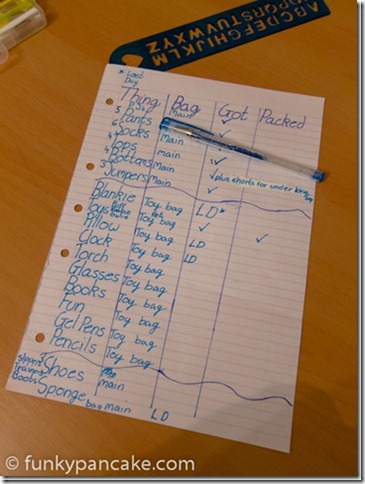 ABCDEFGHIJKLM
NOPQRSTUVWXYZ
* Last Day
Thing Bag Got Packed
5 Pants Main ✓
6 Socks main ✓
4 Tops main
4 Bottoms main ✓ plus shorts for under
3 Jumpers main ✓
Blankie Toy bag LD*
Toys Toy bag ✓
Pillow Toy bag LD ✓
Clock Toy bag LD
Torch Toy bag
Glasses Toy bag
Books Toy bag
Fun Toy bag
Gel Pens Toy bag
Pencils Toy bag
slippers Trainers Boots Shoes main
Sponge bag main LD
© funkypancake.com